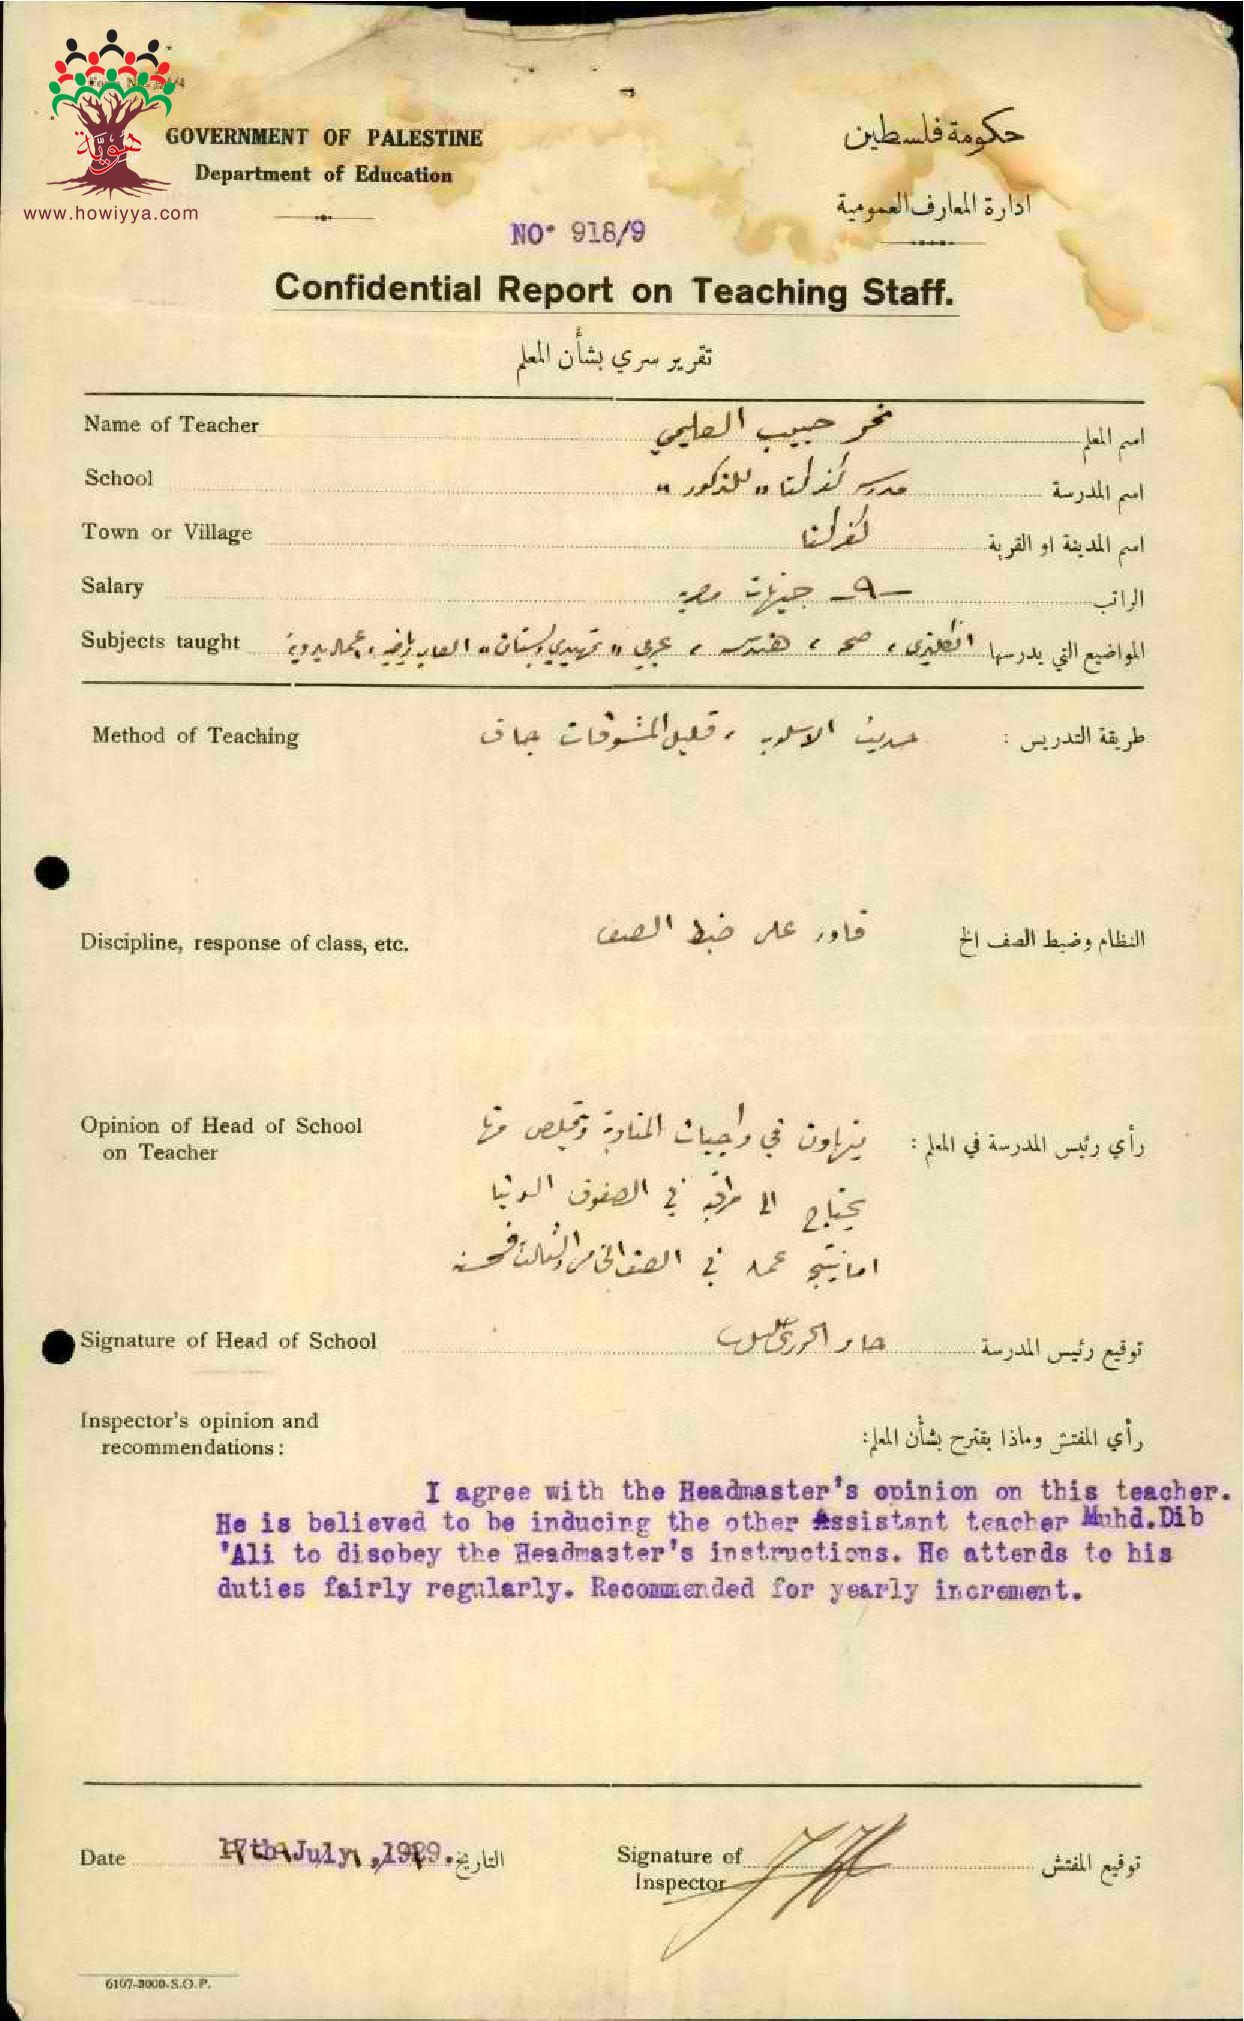 هويّة
www.howiyya.com
GOVERNMENT OF PALESTINE
Department of Education
حكومة فلسطين
ادارة المعارف العمومية
NO. 918/9
Confidential Report on Teaching Staff.
تقرير سري بشأن المعلم
Name of Teacher حبيب اسم المعلم
School مدرسة كفركنا "للذكور" اسم المدرسة
Town or Village كفركنا اسم المدينة او القرية
Salary -٩- جنيهات الراتب
Subjects taught انكليزي، صحة، هندسة، عربي "تمهيدي وبستان" المواضيع التي يدرسها
Method of Teaching حديث الاسلوب، قليل المشوقات جاف طريقة التدريس :
Discipline, response of class, etc. قادر على ضبط الصف النظام وضبط الصف الخ
Opinion of Head of School on Teacher رأي رئيس المدرسة في المعلم :
يتهاون في واجبات المناوبة ويتملص منها
يحتاج الى مراقبة في الصفوف الدنيا
اما نتيجة عمله في الصف
Signature of Head of School توقيع رئيس المدرسة
Inspector's opinion and recommendations: رأي المفتش وماذا يقترح بشأن المعلم:
I agree with the Headmaster's opinion on this teacher.
He is believed to be inducing the other Assistant teacher Muhd.Dib
'Ali to disobey the Headmaster's instructions. He attends to his
duties fairly regularly. Recommended for yearly increment.
Date 17th July, 1929. التاريخ Signature of Inspector توقيع المفتش
6107-3000-S.O.P.